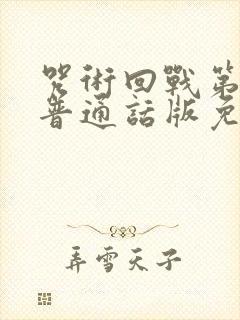 咒術回戰第
普通話版免
弄雪天子